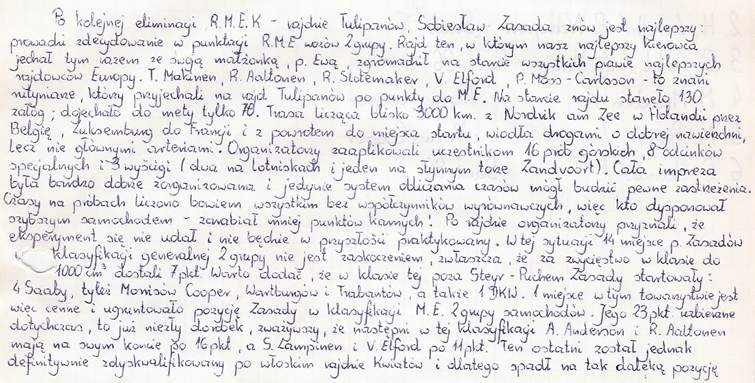 Po kolejnej eliminacji R.M.E.K - rajdzie Tulipanów, Sobiesław Zasada znów jest najlepszy:
prowadzi zdecydowanie w punktacji R.M.E wozów 2 grupy. Rajd ten, w którym nasz najlepszy kierowca
jechał tym razem ze swoją małżonką, p. Ewą, zgromadził na starcie wszystkich prawie najlepszych
rajdowców Europy. T. Makinen, R. Aaltonen, R. Slotemaker, V. Elford, P. Moss-Carlsson - to znani
rutyniarze, którzy przyjechali na rajd Tulipanów po punkty do M.E. Na starcie rajdu stanęło 130
załóg; dojechało do mety tylko 78. Trasa licząca blisko 3000 km. z Nordvik am Zee w Holandii przez
Belgię, Luksemburg do Francji i z powrotem do miejsca startu, wiodła drogami o dobrej nawierzchni,
lecz nie głównymi arteriami. Organizatorzy zaaplikowali uczestnikom 16 prób górskich, 8 odcinków
specjalnych i 3 wyścigi (dwa na lotniskach i jeden na słynnym torze Zandvoort). Cała impreza
była bardzo dobrze zorganizowana i jedynie system obliczania czasów mógł budzić pewne zastrzeżenia.
Czasy na próbach liczono bowiem wszystkim bez współczynników wyrównawczych, więc kto dysponował
szybszym samochodem - zarabiał mniej punktów karnych! Po rajdzie organizatorzy przyznali, że
eksperyment się nie udał i nie będzie w przyszłości praktykowany. W tej sytuacji 14 miejsce p. Zasadów
w klasyfikacji generalnej 2 grupy nie jest zaskoczeniem, zwłaszcza, że za zwycięstwo w klasie do
1000 cm³ dostali 7 pkt. Warto dodać, że w klasie tej poza Steyr-Puchem Zasady startowały:
4 Saaby, tyleż Morrisów Cooper, Wartburgów i Trabantów, a także 1 DKW. 1 miejsce w tym towarzystwie jest
więc cenne i ugruntowało pozycję Zasady w klasyfikacji M.E. 2 grupy samochodów. Jego 23 pkt. uzbierane
dotychczas, to już niezły dorobek, zważywszy, że następni w tej klasyfikacji A. Anderson i R. Aaltonen
mają na swym koncie po 16 pkt, a S. Lampinen i V. Elford po 11 pkt. Ten ostatni został jednak
definitywnie zdyskwalifikowany po włoskim rajdzie Kwiatów i dlatego spadł na tak daleką pozycję